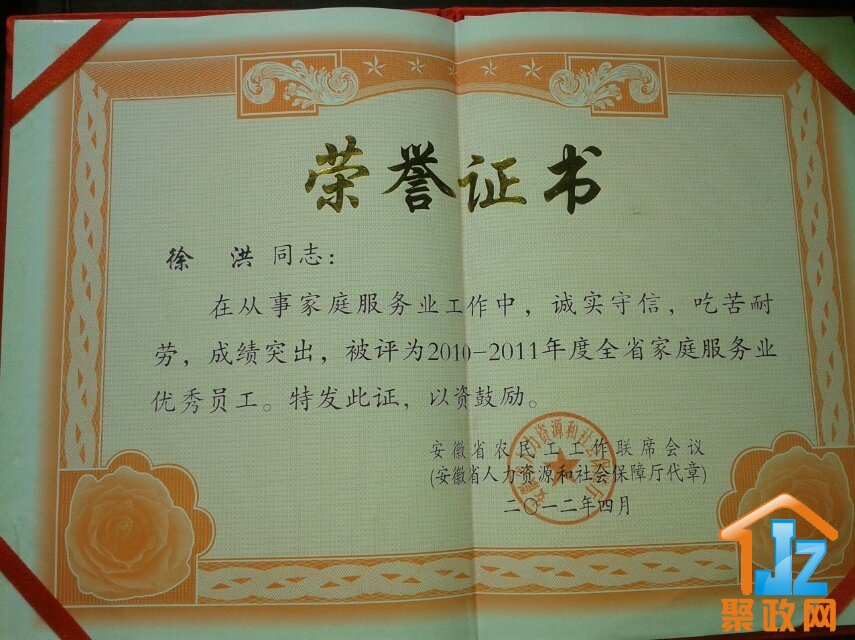 荣誉证书
徐 洪 同志：
在从事家庭服务业工作中，诚实守信，吃苦耐
劳，成绩突出，被评为2010-2011年度全省家庭服务业
优秀员工。特发此证，以资鼓励。
安徽省农民工工作联席会议
(安徽省人力资源和社会保障厅代章)
二〇一二年四月
JZ
聚政网